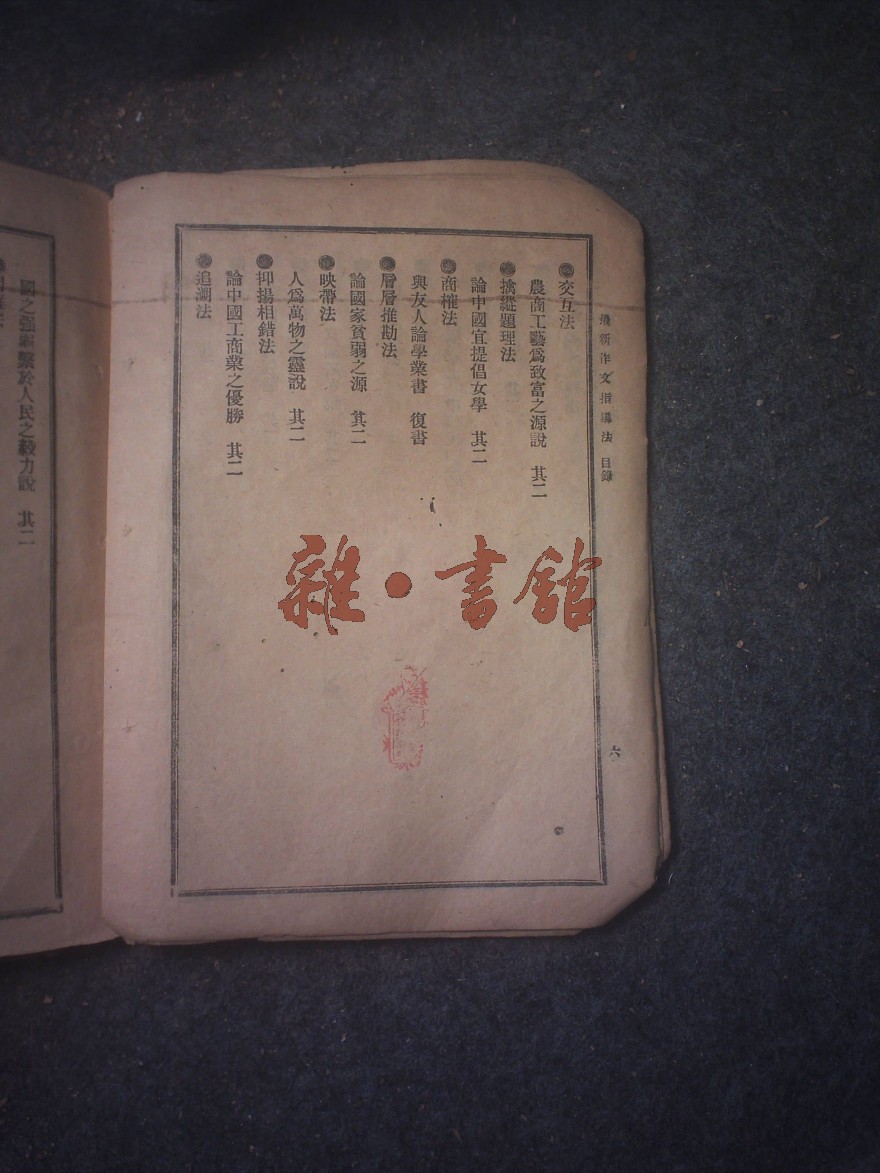 最新作文指導法 目錄
六
交互法
農商工藝爲致富之源說 其二
擒縱題理法
論中國宜提倡女學 其二
商榷法
與友人論學業書 復書
層層推勘法
論國家貧弱之源 其二
映帶法
人爲萬物之靈說 其二
抑揚相錯法
論中國工商業之優勝 其二
追溯法
國之強弱繫於人民之毅力說 其二
雜·書館